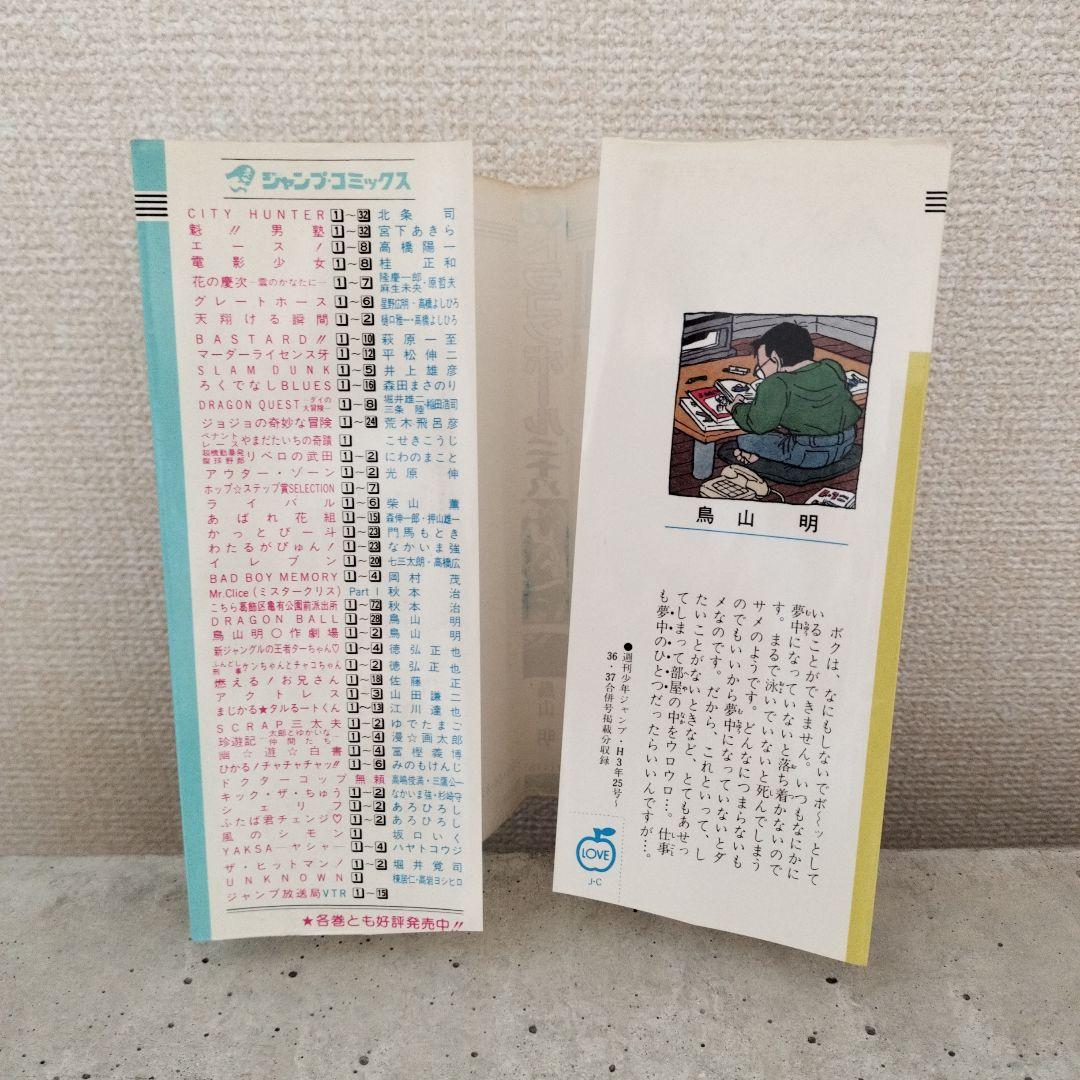 ジャンプ・コミックス
CITY HUNTER 1～32 北条 司
魁!!男塾 1～32 宮下あきら
エース! 1～8 高橋陽一
電影少女 1～8 桂 正和
花の慶次―雲のかなたに― 1～7 隆慶一郎 麻生未央・原哲夫
グレートホース 1～6 星野広明・高橋よしひろ
天翔ける瞬間 1～2 樋口雅一・高橋よしひろ
BASTARD!! 1～10 萩原一至
マーダーライセンス牙 1～12 平松伸二
SLAM DUNK 1～5 井上雄彦
ろくでなしBLUES 1～16 森田まさのり
DRAGON QUEST―ダイの大冒険― 1～8 堀井雄二 三条陸・稲田浩司
ジョジョの奇妙な冒険 1～24 荒木飛呂彦
ペナントレース やまだたいちの奇蹟 1 こせきこうじ
超機動暴発蹴球野郎 リベロの武田 1～2 にわのまこと
アウター・ゾーン 1～2 光原 伸
ホップ☆ステップ賞SELECTION 1～7
ライバル 1～6 柴山 薫
あばれ花組 1～15 森伸一郎・押山雄一
かっとび一斗 1～23 門馬もとき
わたるがぴゅん! 1～23 なかいま強
イレブン 1～20 七三太朗・高橋広
BAD BOY MEMORY 1～4 岡村 茂
Mr.Clice(ミスタークリス) Part 1 秋本 治
こちら葛飾区亀有公園前派出所 1～72 秋本 治
DRAGON BALL 1～28 鳥山 明
鳥山明○作劇場 1～2 鳥山 明
新ジャングルの王者ターちゃん♡ 1～4 徳弘正也
ふんどし刑事ケンちゃんとチャコちゃん 1～2 徳弘正也
燃える!お兄さん 1～18 佐藤 正
アクトレス 1～3 山田謙二
まじかる★タルるートくん 1～13 江川達也
SCRAP三太夫 1～2 ゆでたまご
珍遊記―太郎とゆかいな仲間たち― 1～4 漫☆画太郎
幽☆遊☆白書 1～4 冨樫義博
ひかる!チャチャチャッ!! 1～6 みのもけんじ
ドクターコップ無頼 高嶋俊満・三鷹公一
キック・ザ・ちゅう 1～2 なかいま強・杉崎守
シェリフ 1～2 あろひろし
ふたば君チェンジ♡ 1～2 あろひろし
風のシモン 1 坂口いく
YAKSA―ヤシャ― 1～4 ハヤトコウジ
ザ・ヒットマン! 1～2 堀井覚司
UNKNOWN 1 棟居仁・高岩ヨシヒロ
ジャンプ放送局VTR 1～15
★各巻とも好評発売中!!
鳥山 明
ボクは、なにもしないでボ～ッとして
いることができません。いつもなにかに
夢中になっていないと落ち着かないので
す。まるで泳いでいないと死んでしまう
サメのようです。どんなにつまらないも
のでもいいから夢中になっていないとダ
メなのです。だから、これといって、し
たいことがないときなど、とてもあせっ
てしまって部屋の中をウロウロ…。仕事
も夢中のひとつだったらいいんですが…。
●週刊少年ジャンプ・H3年25号～
36・37合併号掲載分収録
LOVE
J-C